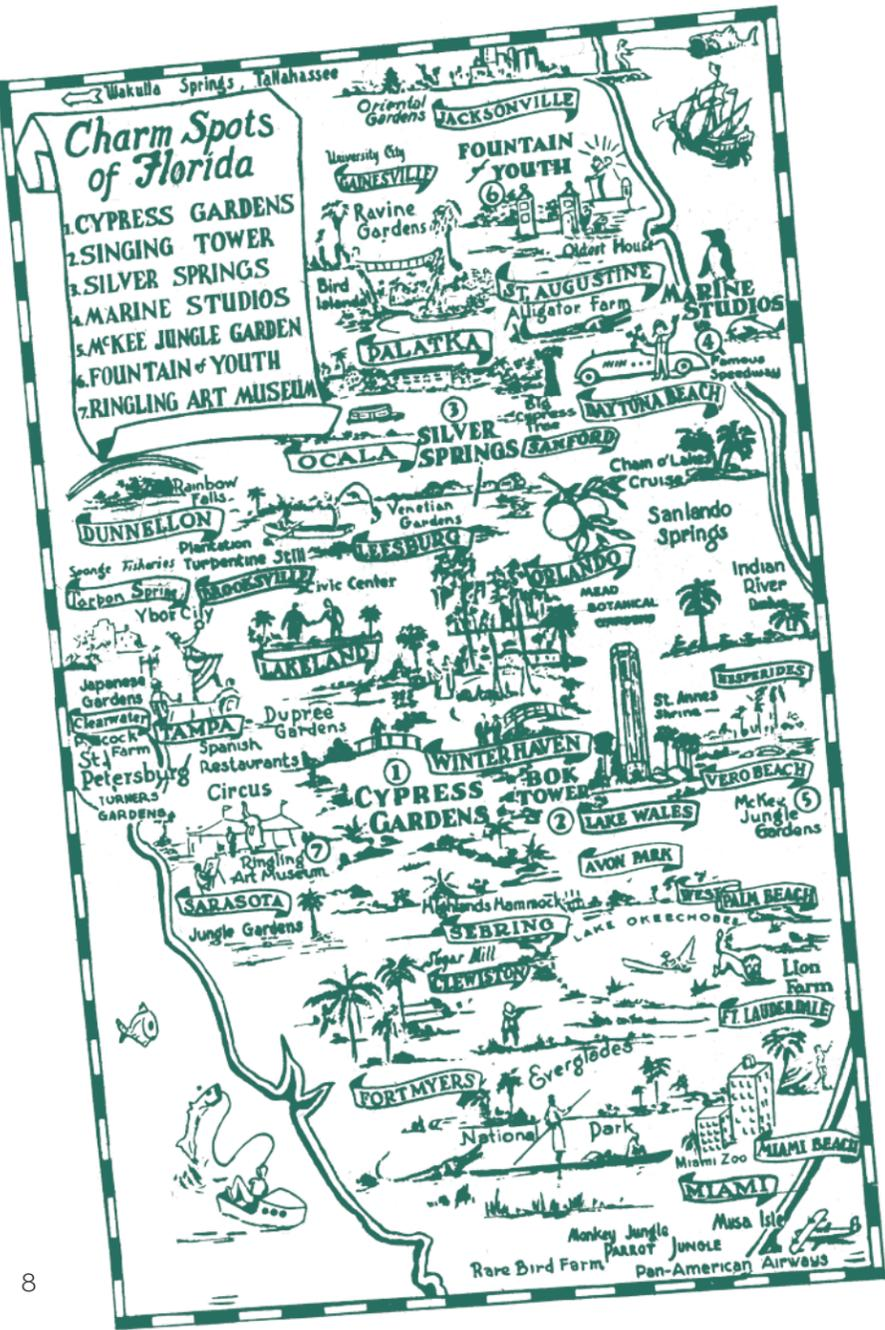 Wakulla Springs, Tallahassee
Charm Spots
of Florida
1.CYPRESS GARDENS
2.SINGING TOWER
3.SILVER SPRINGS
4.MARINE STUDIOS
5.McKEE JUNGLE GARDEN
6.FOUNTAIN of YOUTH
7.RINGLING ART MUSEUM
Oriental
Gardens
JACKSONVILLE
University City
GAINESVILLE
FOUNTAIN
of YOUTH
6
Ravine
Gardens
Oldest House
Bird
Island
ST. AUGUSTINE
Alligator Farm
MARINE
STUDIOS
4
PALATKA
Famous
Speedway
DAYTONA BEACH
3
Big
Cypress
Tree
OCALA
SILVER
SPRINGS
SANFORD
Chain o'Lakes
Cruise
Rainbow
Falls
DUNNELLON
Venetian
Gardens
LEESBURG
Sanlando
Springs
Plantation
Turpentine Still
Sponge Fisheries
Tarpon Spring
BROOKSVILLE
Civic Center
ORLANDO
MEAD
BOTANICAL
GARDENS
Indian
River
Ybor City
LAKELAND
Japanese
Gardens
Clearwater
TAMPA
Dupree
Gardens
HESPERIDES
St. Annes
Shrine
Farm
St.
Petersburg
Spanish
Restaurants
TURNERS
GARDENS
Circus
1
CYPRESS
GARDENS
WINTER HAVEN
BOK
TOWER
2
LAKE WALES
VERO BEACH
McKey
Jungle
Gardens
5
Ringling
Art Museum
7
AVON PARK
SARASOTA
Jungle Gardens
Highlands Hammock
SEBRING
WEST PALM BEACH
LAKE OKEECHOBEE
Sugar Mill
CLEWISTON
Lion
Farm
FT. LAUDERDALE
Everglades
FORT MYERS
National Park
Miami Zoo
MIAMI BEACH
MIAMI
Musa Isle
Monkey Jungle
PARROT JUNGLE
Rare Bird Farm
Pan-American Airways
8